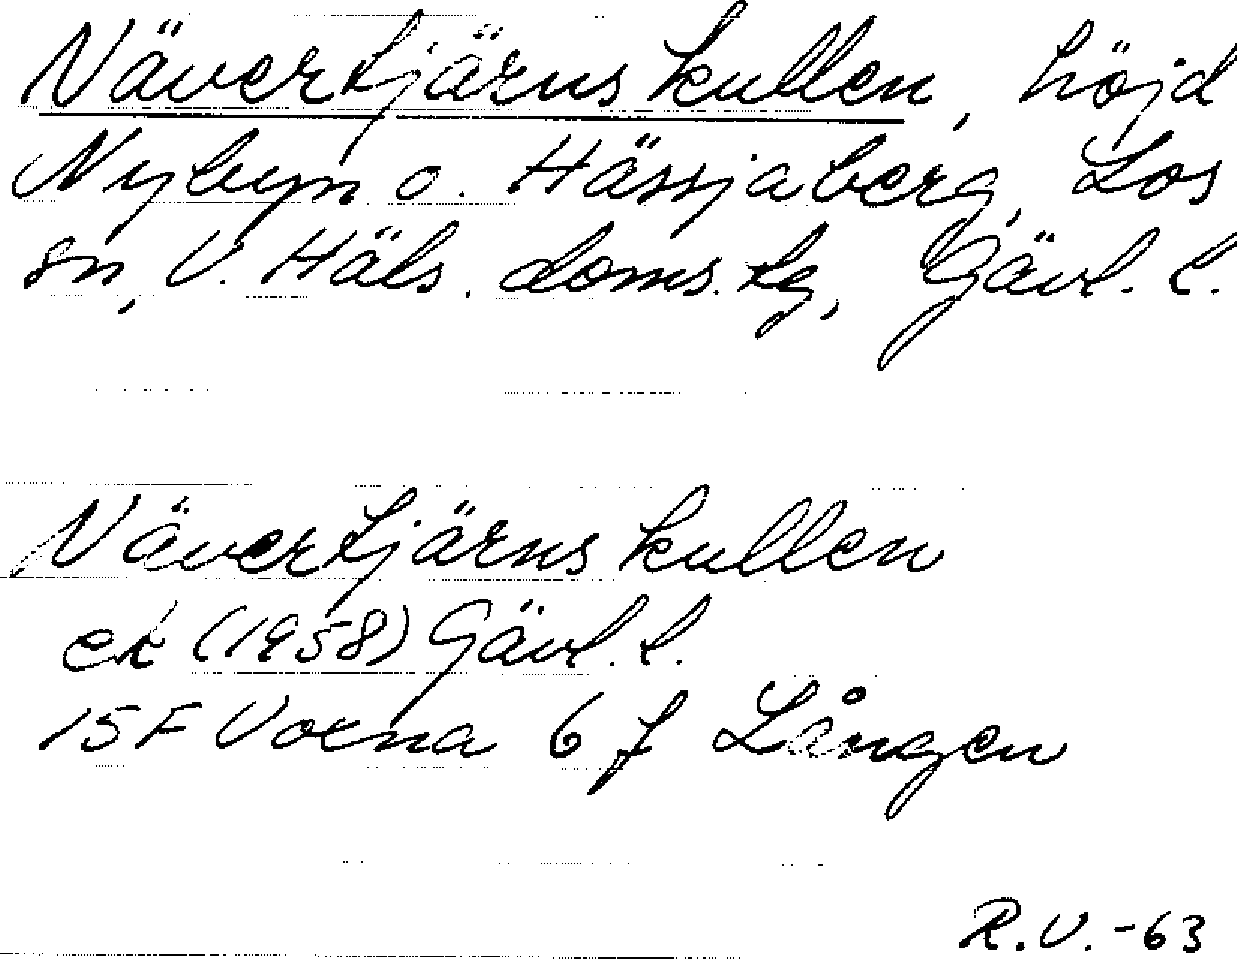 Nävertjärnskullen, höjd
Nybyn o. Hässjaberg, Los
sn, V. Häls. doms. tg, Gävl. l.
Nävertjärnskullen
ek (1958) Gävl. l.
15F Voxna 6 f Lången
R.V.-63